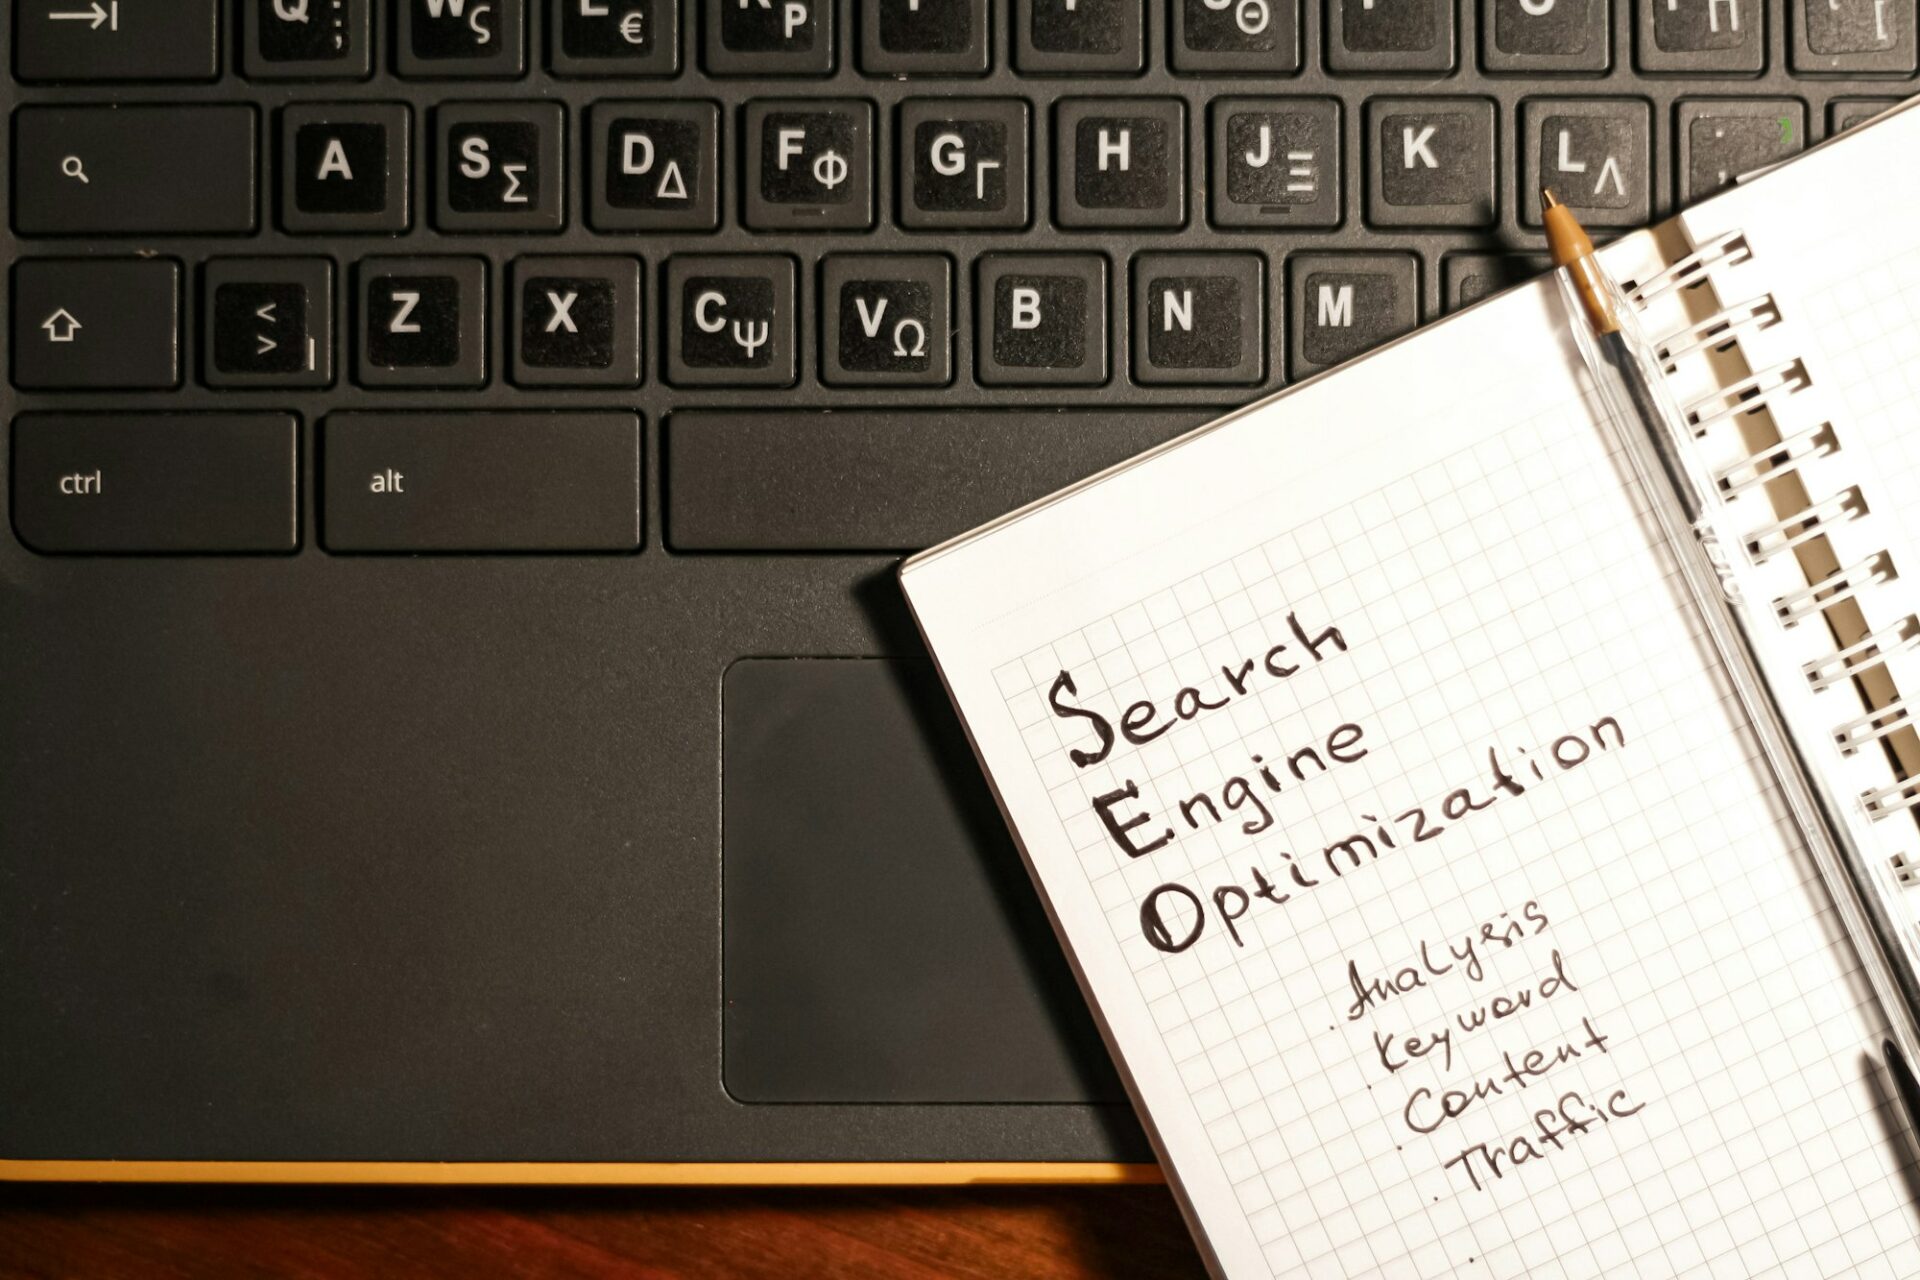 Q ; :
W ς
E €
R Ρ
Θ
Π
[
A
S Σ
D Δ
F Φ
G Γ
H
J Ξ
K
L Λ
< > |
Z
X
C Ψ
V Ω
B
N
M
ctrl
alt
Search
Engine
Optimization
. Analysis
. Keyword
. Content
. Traffic
.